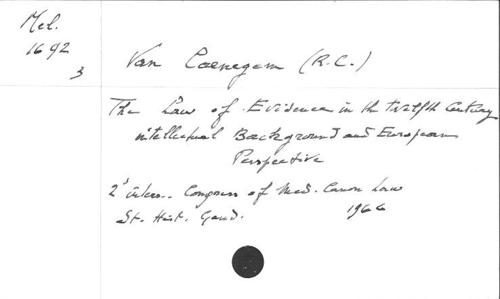 Mel.
1692
3
Van Caenegem (R.C.)
The Law of Evidence in the twelfth Century
intellectual Background and European
Perspective
2' intern. Congress of Med. Canon Law
St. Hist. Gand. 1966